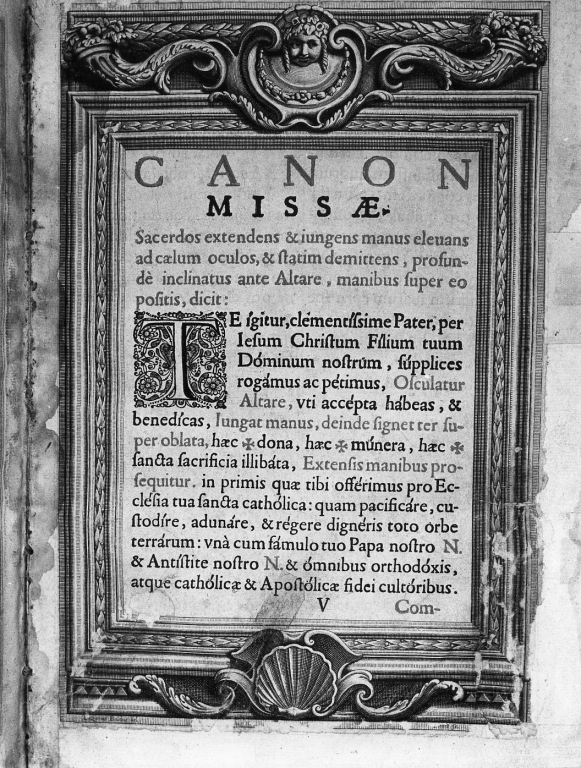 CANON
MISSÆ.
Sacerdos extendens & iungens manus eleuans
ad cælum oculos, & ſtatim demittens, profun-
dè inclinatus ante Altare, manibus ſuper eo
poſitis, dicit:
TE ígitur, clementíſsime Pater, per
Ieſum Chriſtum Fílium tuum
Dóminum noſtrum, ſúpplices
rogámus ac pétimus, Oſculatur
Altare, vti accépta hábeas, &
benedícas, Iungat manus, deinde ſignet ter ſu-
per oblata, hæc ✠ dona, hæc ✠ múnera, hæc ✠
ſancta ſacrificia illibáta, Extenſis manibus pro-
ſequitur. in primis quæ tibi offérimus pro Ec-
cléſia tua ſancta cathólica: quam pacificáre, cu-
ſtodíre, adunáre, & régere dignéris toto orbe
terrárum: vnà cum fámulo tuo Papa noſtro N.
& Antíſtite noſtro N. & ómnibus orthodóxis,
atque cathólicæ & Apoſtólicæ fidei cultóribus.
V Com-